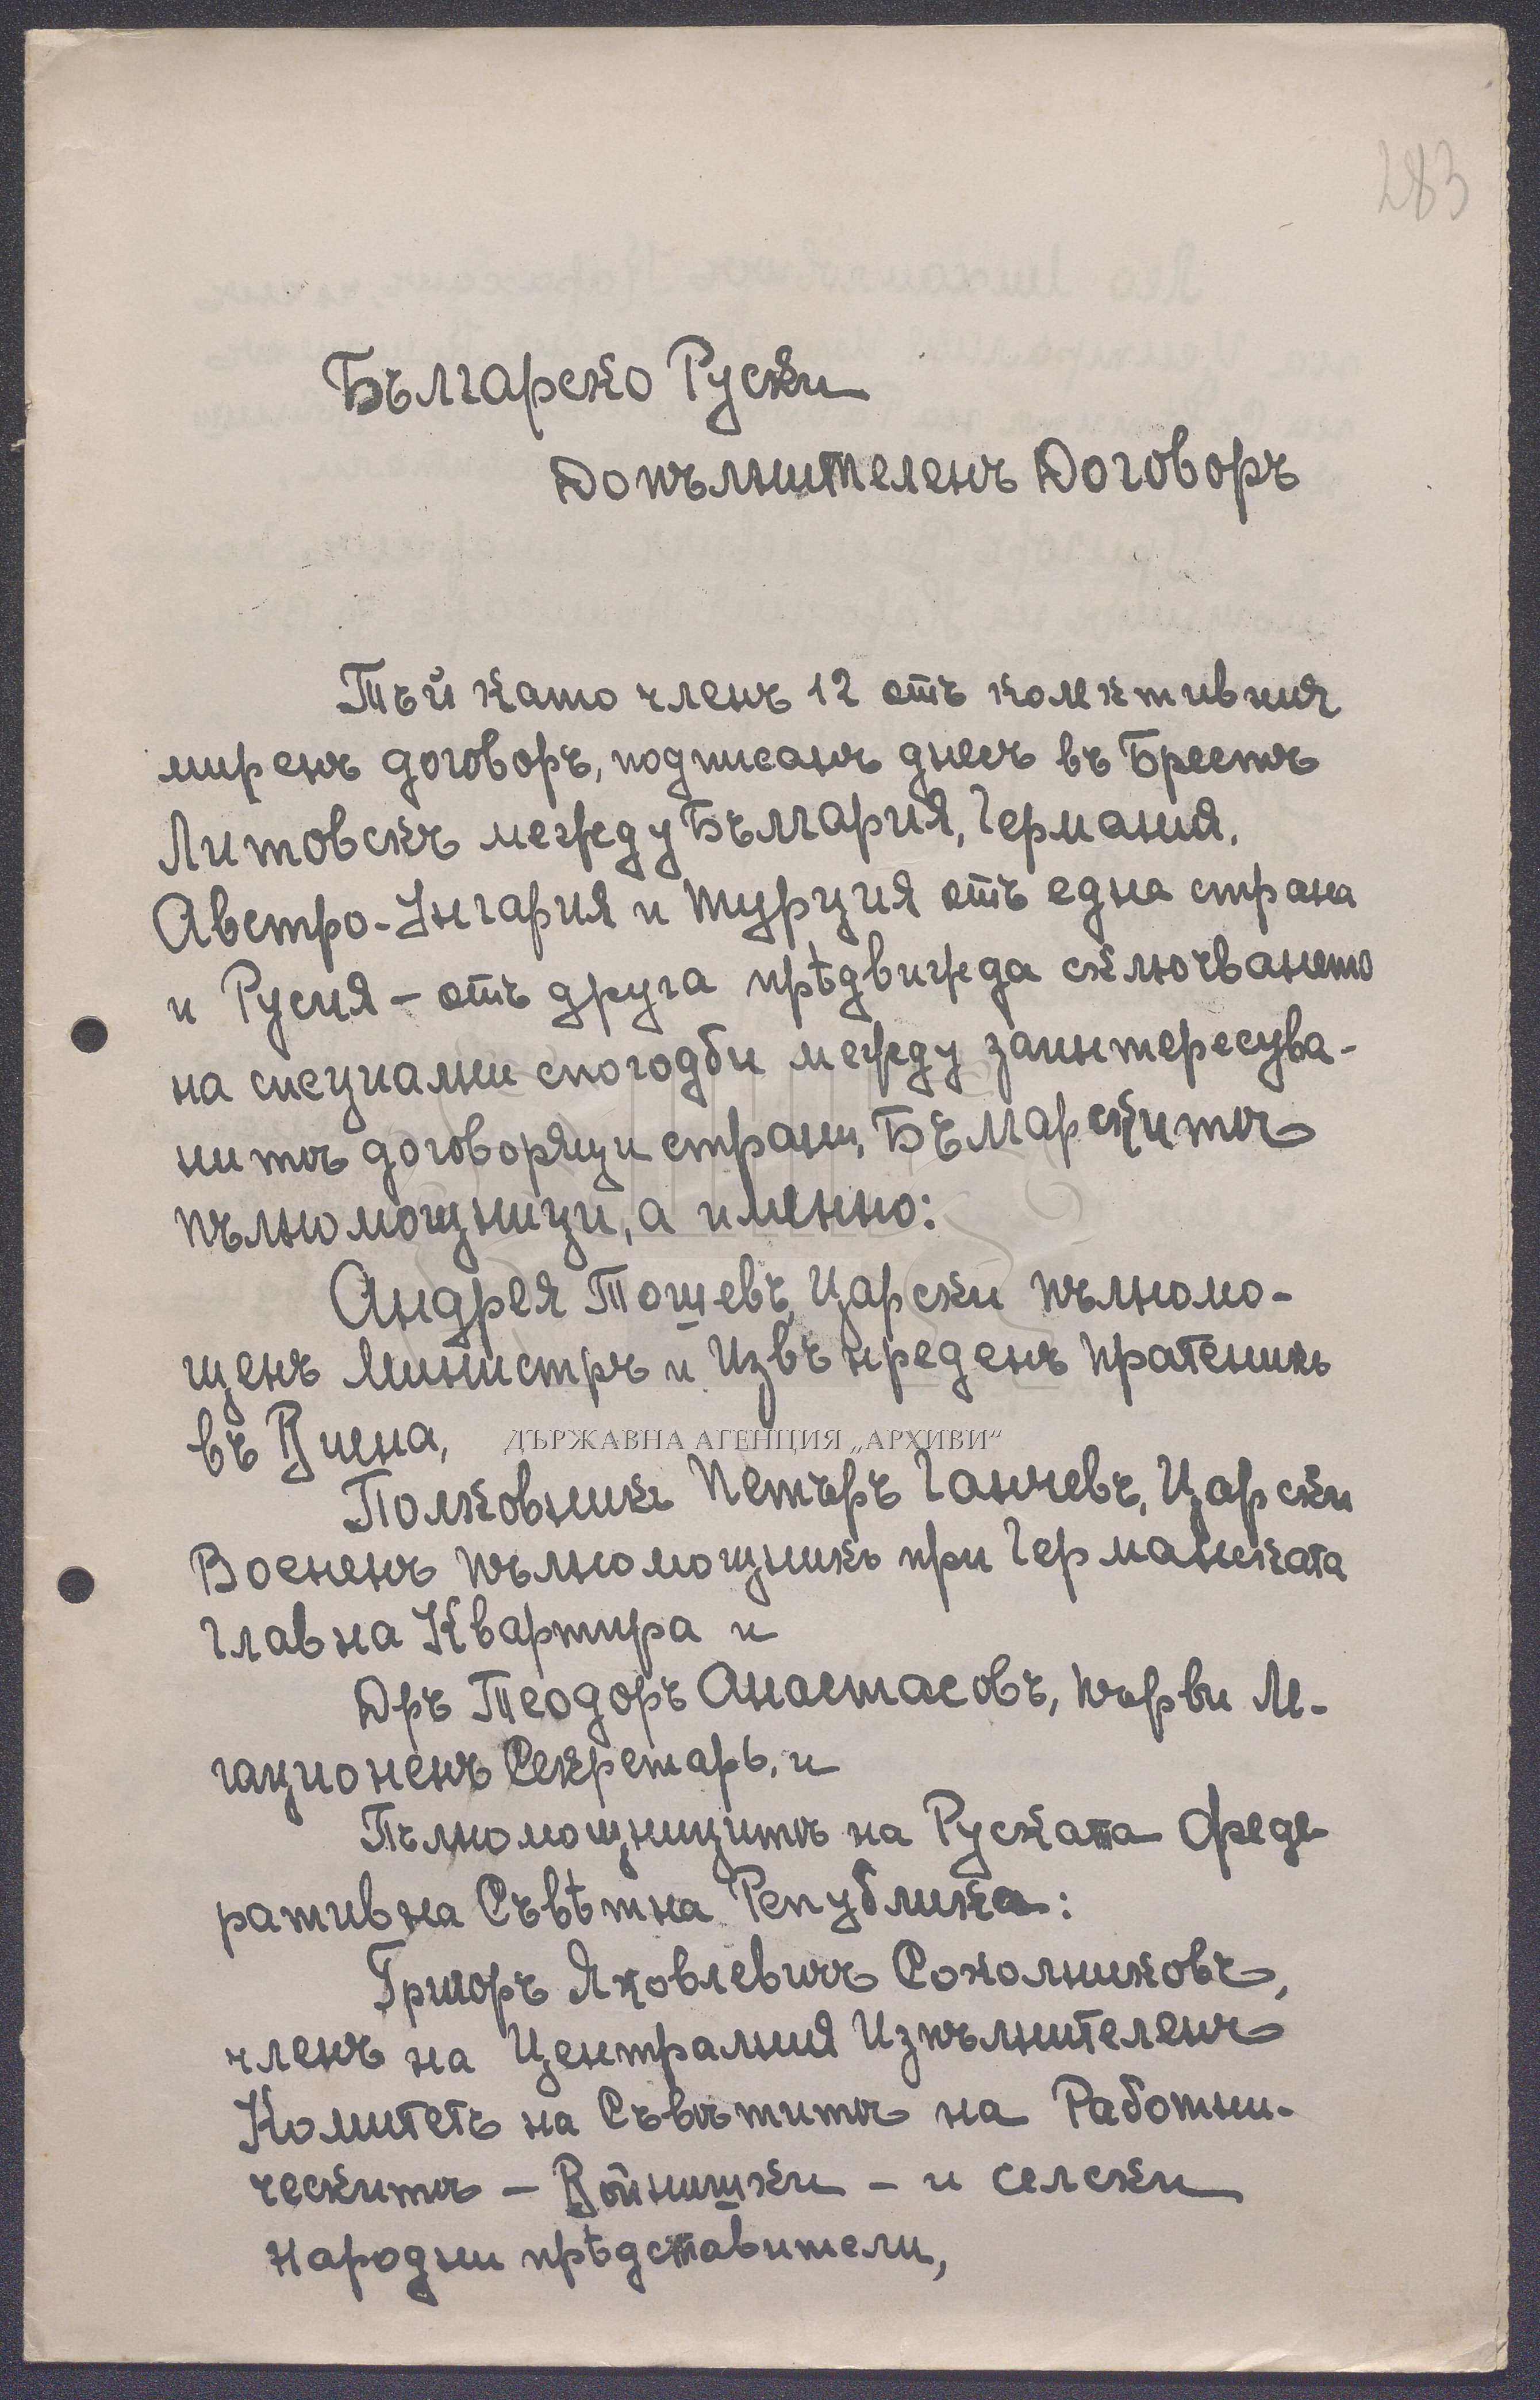 283
Българско Руски
Допълнителенъ Договоръ
Тъй като членъ 12 отъ колективния
миренъ договоръ, подписанъ днесъ въ Брестъ
Литовскъ между България, Германия,
Австро-Унгария и Турция отъ една страна
и Русия – отъ друга прѣдвижда сключването
на специални спогодби между заинтересува-
нитѣ договорящи страни, Българскитѣ
пълномощници, а именно:
Андрея Тошевъ, Царски пълномо-
щенъ Министръ и Извънреденъ пратеникъ
въ Виена,
ДЪРЖАВНА АГЕНЦИЯ „АРХИВИ“
Полковникъ Петъръ Ганчевъ, Царски
Военненъ пълномощникъ при Германската
Главна Квартира и
Дръ Теодоръ Анастасовъ, първи Ле-
гационенъ Секретарь, и
Пълномощницитѣ на Руската Феде
ративна Съвѣтна Република:
Григоръ Яковлевичъ Соколниковъ,
членъ на Централния Изпълнителенъ
Комитетъ на Съвѣтитѣ на Работни-
ческитѣ – Войнишки – и селски
народни прѣдставители,